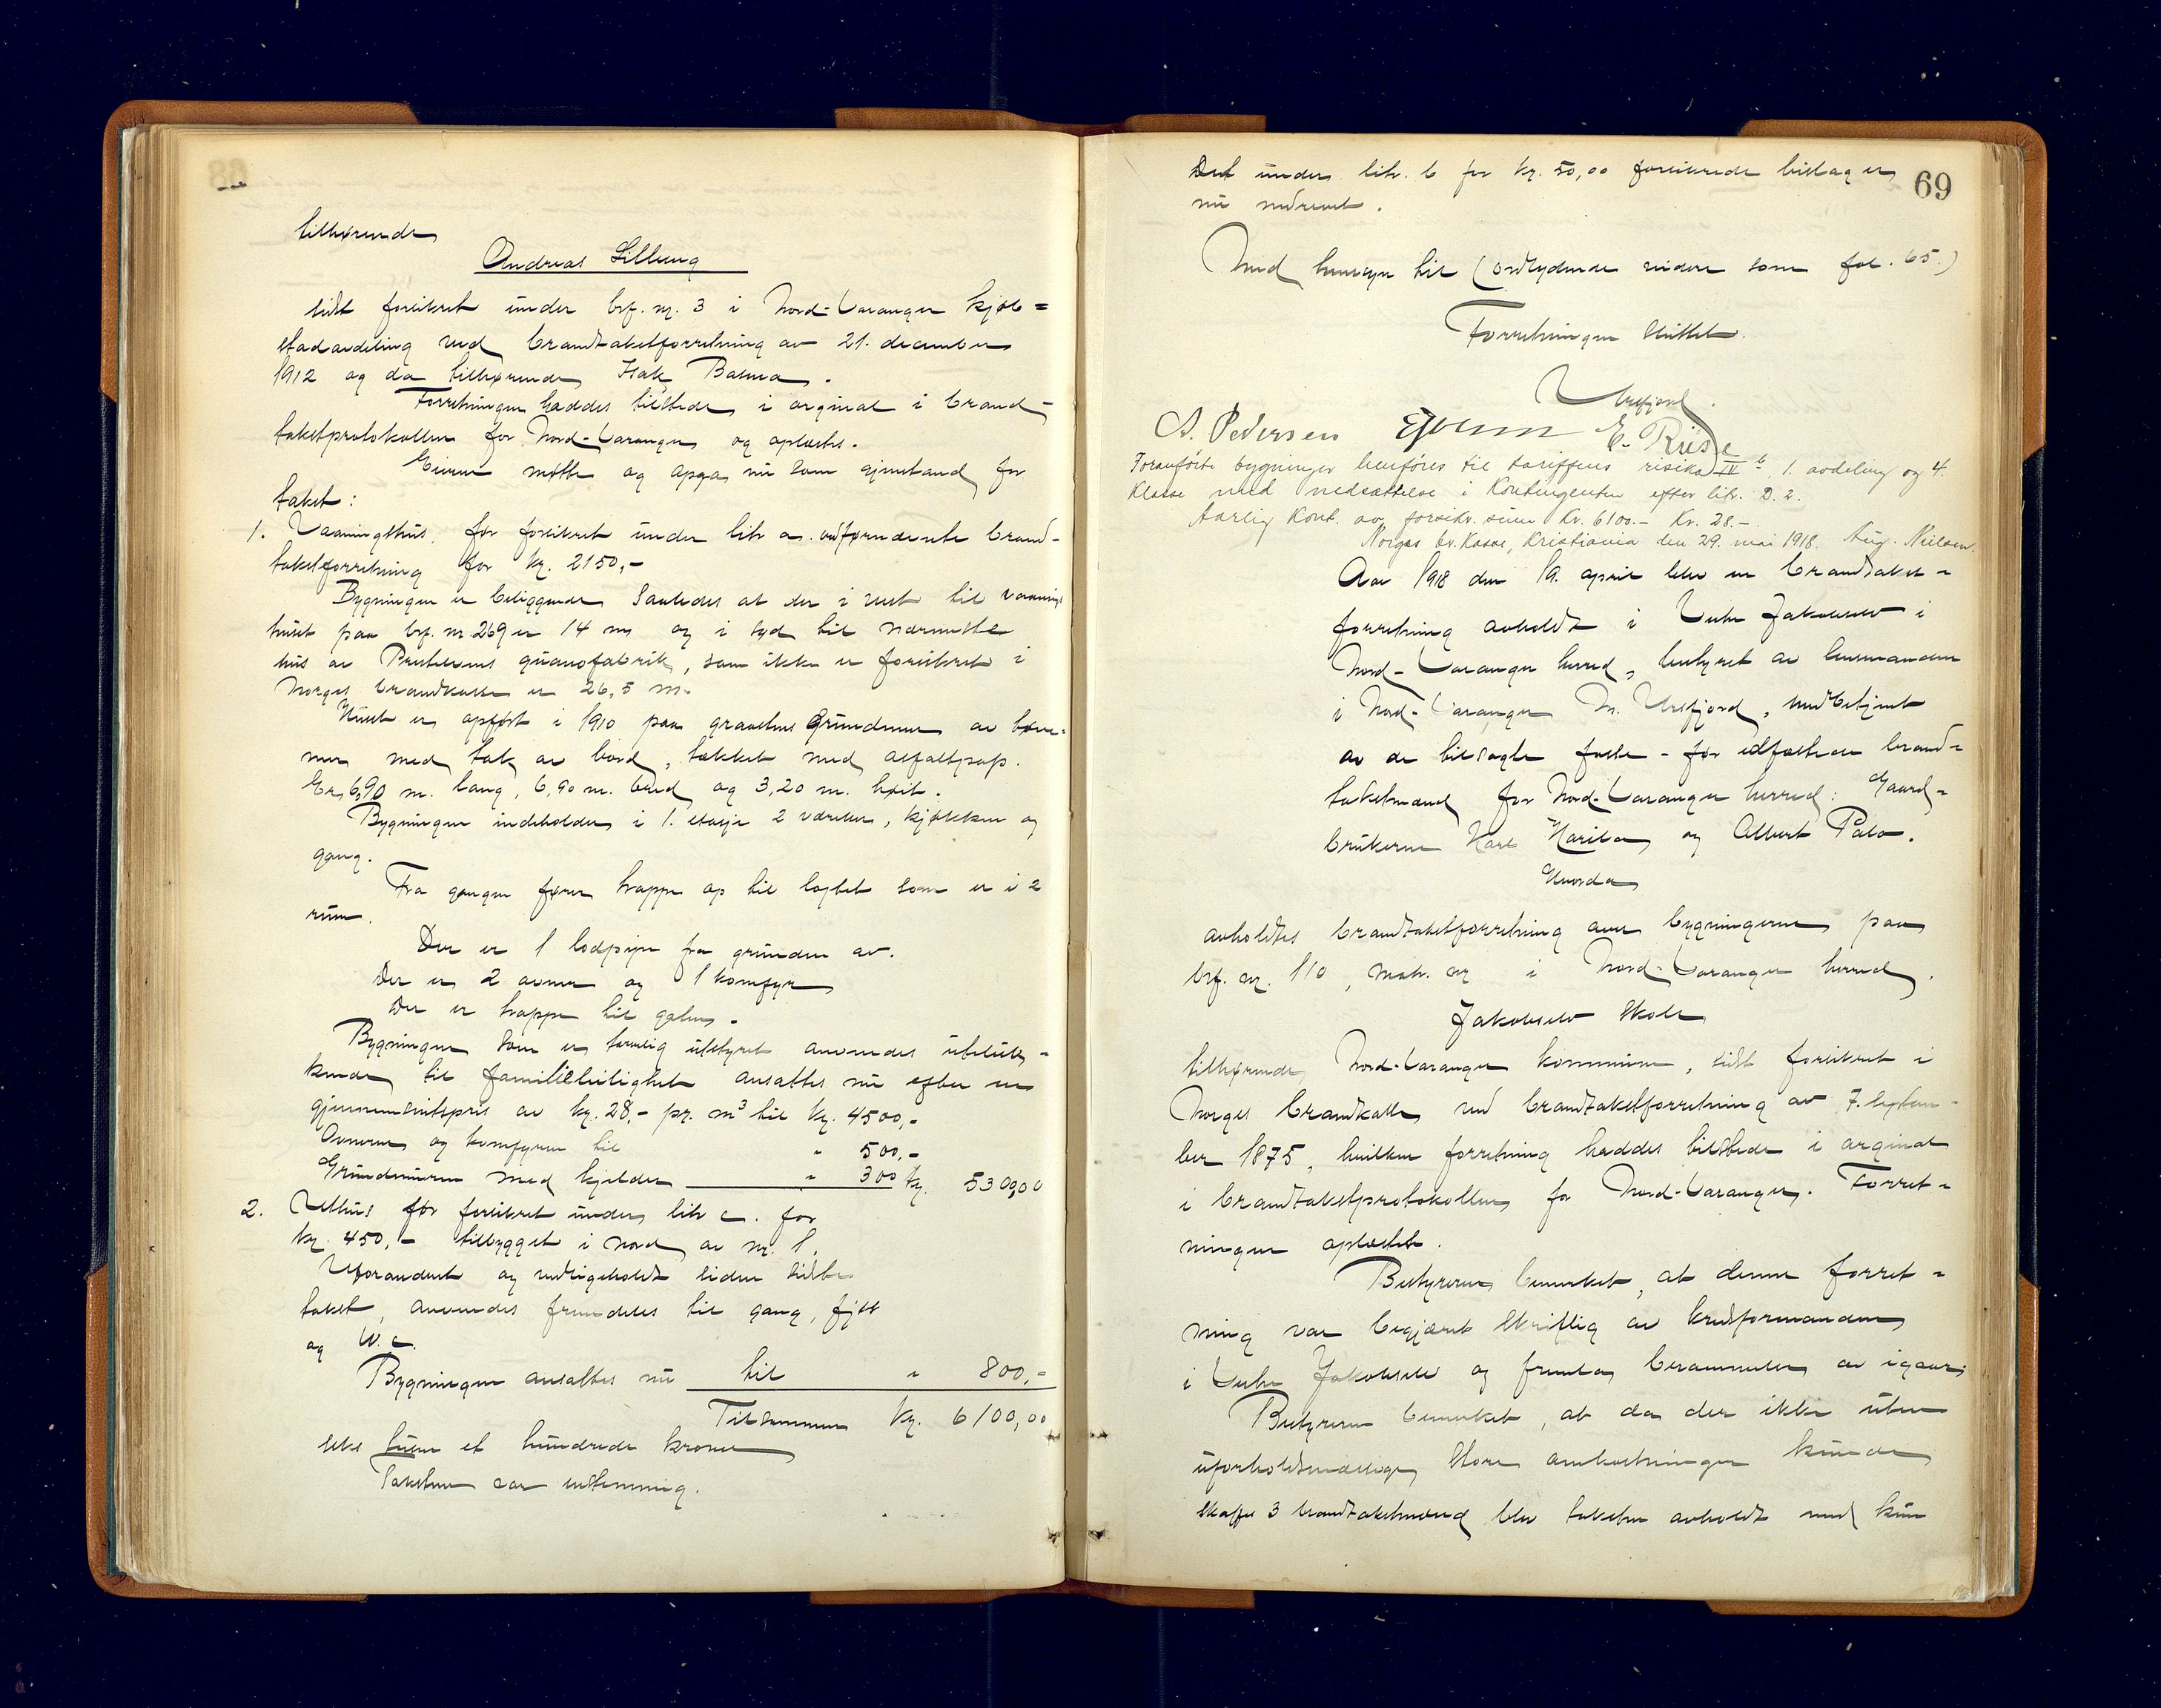 tilhørende
Andreas Lillung
sidst forsikret under brf. nr. 3 i Nord-Varanger kjøb=
stadavdeling ved brandtakstforretning av 21. december
1912 og da tilhørende Isak Basma.
Forretningen haddes tilstede i orginal i brand-
takstprotokollen for Nord-Varanger og oplæstes.
Eieren møtte og opga nu som gjenstand for
takst:
1. Vaaningshus, før forsikret under litr a. ved forrendente brand-
takstforretning for kr. 2150,-
Bygningen er beliggende saaledes at der i vest til vaanings
huset paa brf. nr 269 er 14 m og i syd til nærmeste
hus av Prestevens guanofabrik, som ikke er forsikret i
Norges brandkasse er 26,5 m.
Huset er opført i 1910 paa graastens Grundmur av
med tak av bord, tækket med asfaltpap.
Er 6,90 m. lang, 6,90 m. bred og 3,20 m. høit.
Bygningen indeholder i 1. etasje 2 værelser, kjøkken og
gang.
Fra gangen fører trappe op til loftet som er i 2
rum.
Der er 1 lodpipe fra grunden av.
Der er 2 ovner og 1 komfyr
Der er trappe til gaten.
Bygningen som er tarvelig utstyret anvendes utelük-
kende til familieleilighet ansattes nu efter en
gjennemsnitspris av kr. 28,- pr. m³ til kr. 4500,-
Ovnene og komfyren til " 500,-
Grundmuren med kjelder " 300 kr. 5300,00
2. Uthus før forsikret under litr c. for
kr. 450,- tilbygget i nord av nr. 1.
Uforandret og vedligeholdt siden sidste
takst, anvendes fremdeles til gang, fjøs
og W.c.
Bygningen ansattes nu til " 800,-
Tilsammen kr. 6100,00
seks tusen et hundrede kroner
Taksten var enstemmig.
69
Det under litr. b for kr. 50,00 forsikrede bislag er
nu nedrevet.
Med hensyn til (ordlydende videre som fol. 65.)
Forretningen sluttet.
Ursfjord.
A. Pedersen E. Riise
Foranførte bygninger henføres til tariffens risiko IV b 1. avdeling og 4.
Klasse med nedsættelse i Kontingenten efter litr. D. 2.
Aarlig Kont. av forsikr. sum Kr. 6100.- Kr. 28.-
Norges br. Kasse, Kristiania den 29. mai 1918. Aug. Nielsen.
Aar 1918 den 19. april blev en brandtakst-
forretning avholdt i Vestre Jakobselv i
Nord-Varanger herred, bestyret av lensmanden
i Nord-Varanger M. Ursfjord, medbetjent
av de tilsagte faste - før edfæstede brand-
takstmænd for Nord-Varanger herred: Gaard-
brukerne Karl Harila og Albert Palo.
Hvorda
avholdtes brandtakstforretning over bygningerne paa
brf. nr. 110, matr. nr i Nord-Varanger herred.
Jakobselv Skole
tilhørende Nord-Varanger kommune, sidst forsikret i
Norges brandkasse ved brandtakstforretning av 7. septem-
ber 1875, hvilken forretning haddes tilstede i orginal
i brandtakstprotokollen for Nord-Varanger. Forret-
ningen oplæstes.
Bestyreren bemerket, at denne forret-
ning var begjæret skriftlig av kredsformanden
i Vestre Jakobselv og fremla berammelse av igaar.
Bestyreren bemerket, at da der ikke uten
uforholdsmæssige store omkostninger kunde
skaffes 3 brandtakstmænd blev taksten avholdt med kun